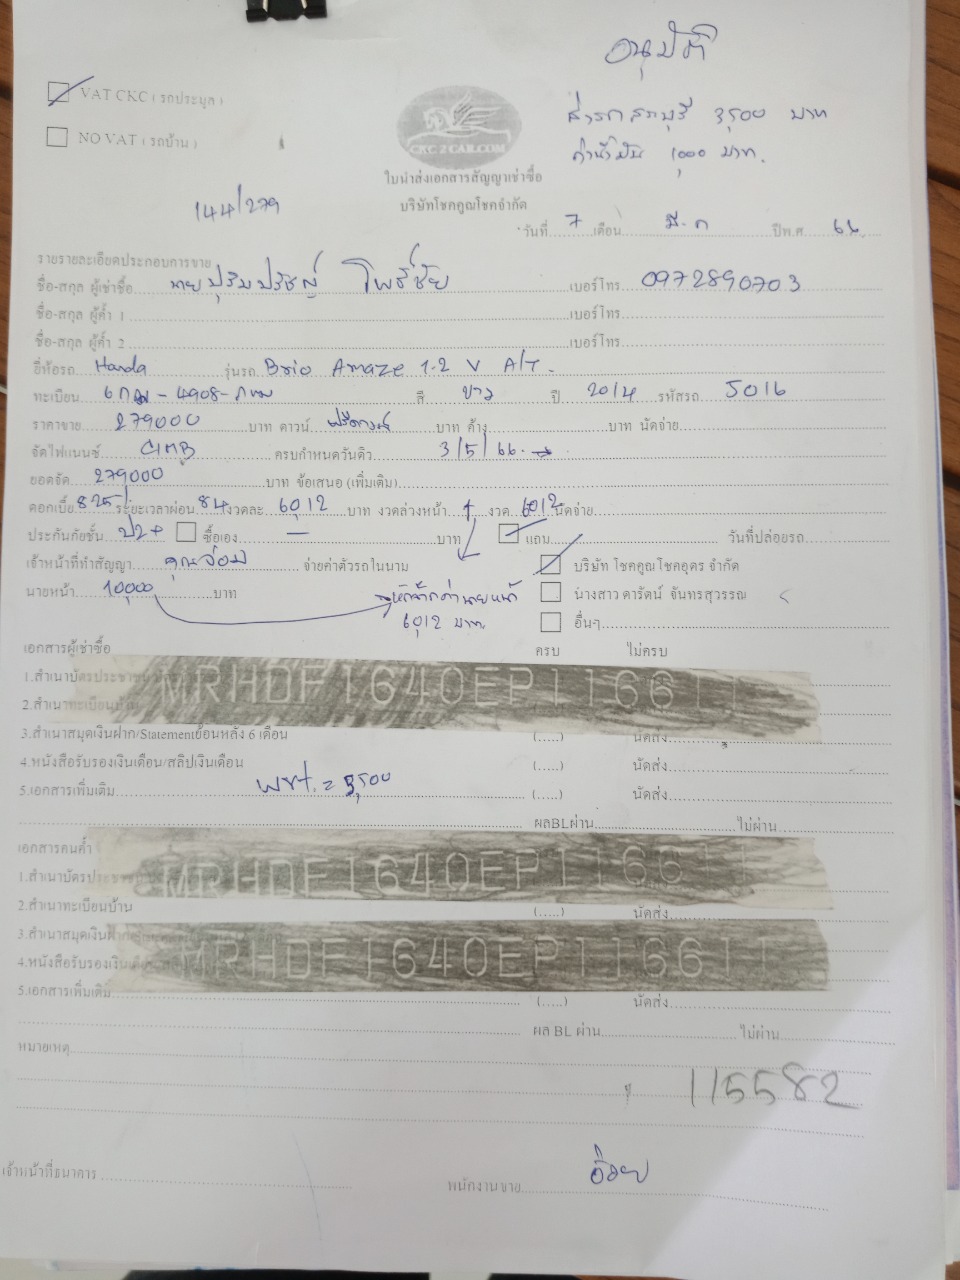 อนุมัติ
VAT CKC ( รถประมูล )
ส่งรถ สระบุรี 3,500 บาท
NO VAT ( รถบ้าน )
CKC 2 CAR.COM
ค่าน้ำมัน 1,000 บาท.
ใบนำส่งเอกสารสัญญาเช่าซื้อ
144/279
บริษัทโชคคูณโชคจำกัด
วันที่ 7 เดือน มี.ค ปีพ.ศ 66
รายรายละเอียดประกอบการขาย
ชื่อ-สกุล ผู้เช่าซื้อ นาย โพธิ์ชัย เบอร์โทร 0972890703
ชื่อ-สกุล ผู้ค้ำ 1 เบอร์โทร
ชื่อ-สกุล ผู้ค้ำ 2 เบอร์โทร
ยี่ห้อรถ Honda รุ่นรถ Brio Amaze 1.2 V A/T
ทะเบียน - 4908 - กทม สี ขาว ปี 2014 รหัสรถ 5016
ราคาขาย 279000 บาท ดาวน์ ฟรีดาวน์ บาท ค้าง บาท นัดจ่าย
จัดไฟแนนซ์ ครบกำหนดวันดิว 3/5/66
ยอดจัด 279000 บาท ข้อเสนอ (เพิ่มเติม)
ดอกเบี้ย 8.25 ระยะเวลาผ่อน 84 งวดละ 6,012 บาท งวดล่างหน้า 1 งวด 6,012 นัดจ่าย
ประกันภัยชั้น ป2+ ซื้อเอง — บาท แถม วันที่ปล่อยรถ
เจ้าหน้าที่ทำสัญญา คุณอ้อม จ่ายค่าตัวรถในนาม บริษัท โชคคูณโชคอุดร จำกัด
นายหน้า 10,000 บาท หักจากค่านายหน้า นางสาว ดารัตน์ จันทรสุวรรณ
6,012 บาท อื่นๆ
เอกสารผู้เช่าซื้อ ครบ ไม่ครบ
1.สำเนาบัตรประชาชน MRHDF1640EP116611
2.สำเนาทะเบียนบ้าน
3.สำเนาสมุดเงินฝาก/Statementย้อนหลัง 6 เดือน (.....) นัดส่ง
4.หนังสือรับรองเงินเดือน/สลิปเงินเดือน (.....) นัดส่ง
5.เอกสารเพิ่มเติม พรบ. = 3,500 (.....) นัดส่ง
ผลBLผ่าน ไม่ผ่าน
เอกสารคนค้ำ
1.สำเนาบัตรประชาชน MRHDF1640EP116611
2.สำเนาทะเบียนบ้าน (.....) นัดส่ง
3.สำเนาสมุดเงินฝาก MRHDF1640EP116611
4.หนังสือรับรองเงินเดือน
5.เอกสารเพิ่มเติม (.....) นัดส่ง
ผล BL ผ่าน ไม่ผ่าน
หมายเหตุ
115582
เจ้าหน้าที่ธนาคาร พนักงานขาย อ้อย